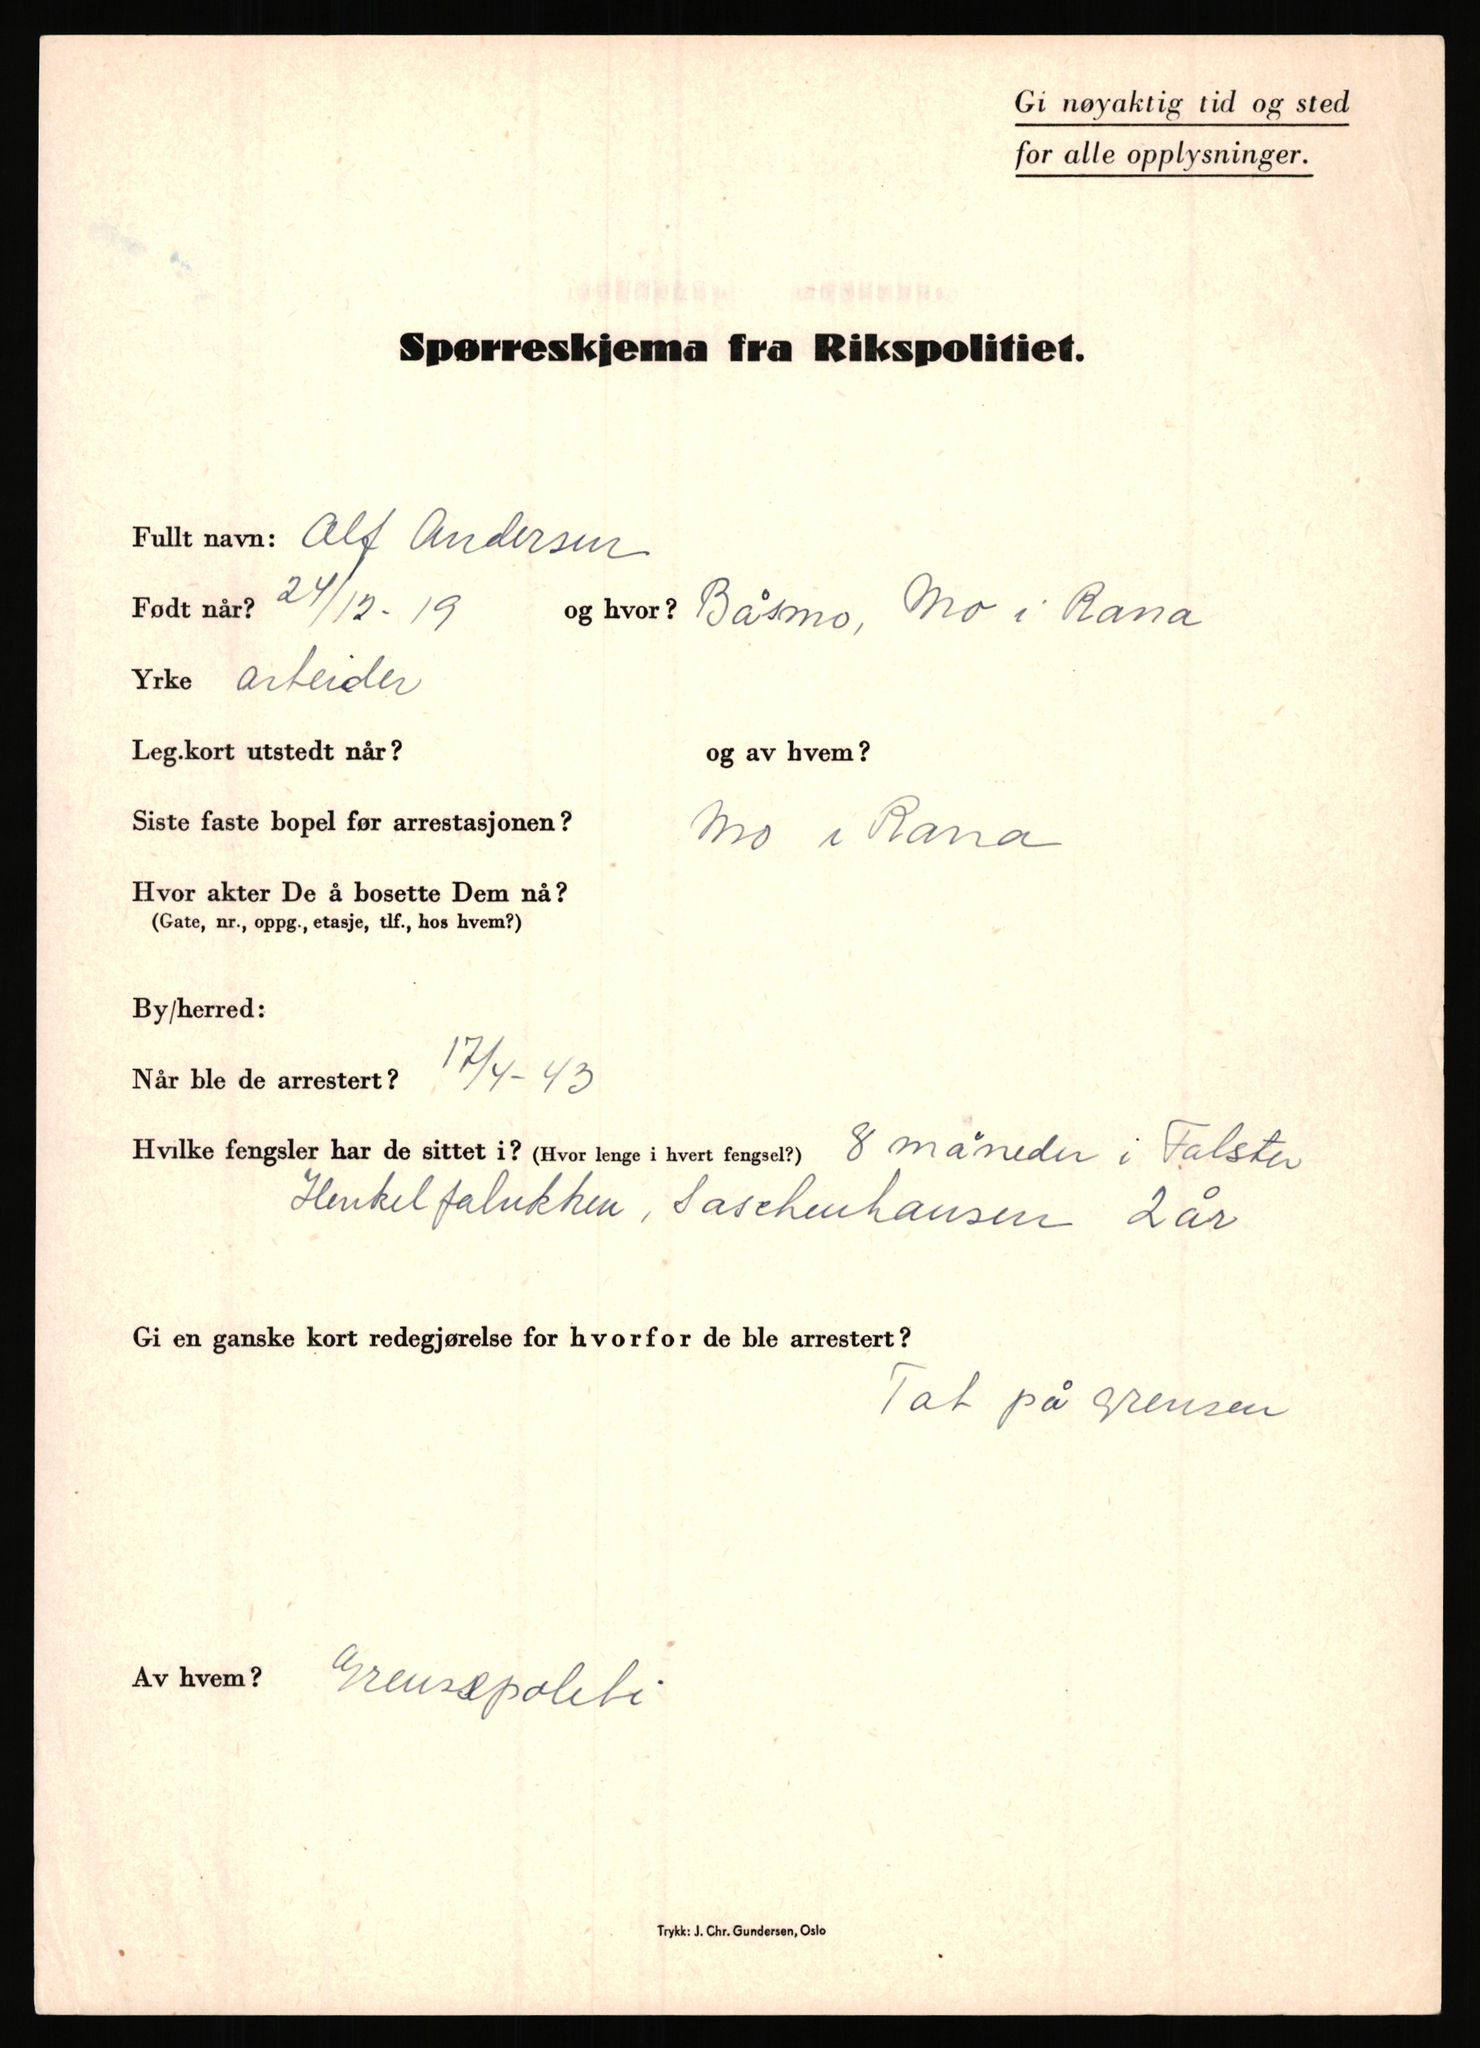 Gi nøyaktig tid og sted
for alle opplysninger.
Spørreskjema fra Rikspolitiet.
Fullt navn: Alf Andersen
Født når? 24/12-19 og hvor? Båsmo, Mo i Rana
Yrke arbeider
Leg.kort utstedt når? og av hvem?
Siste faste bopel før arrestasjonen? Mo i Rana
Hvor akter De å bosette Dem nå?
(Gate, nr., oppg., etasje, tlf., hos hvem?)
By/herred:
Når ble de arrestert? 17/4-43
Hvilke fengsler har de sittet i? (Hvor lenge i hvert fengsel?) 8 måneder i Falster
Henkel fabrikken, Saschenhausen 2 år
Gi en ganske kort redegjørelse for hvorfor de ble arrestert?
Tat på grensen
Av hvem? Grensepoliti
Trykk: J. Chr. Gundersen, Oslo